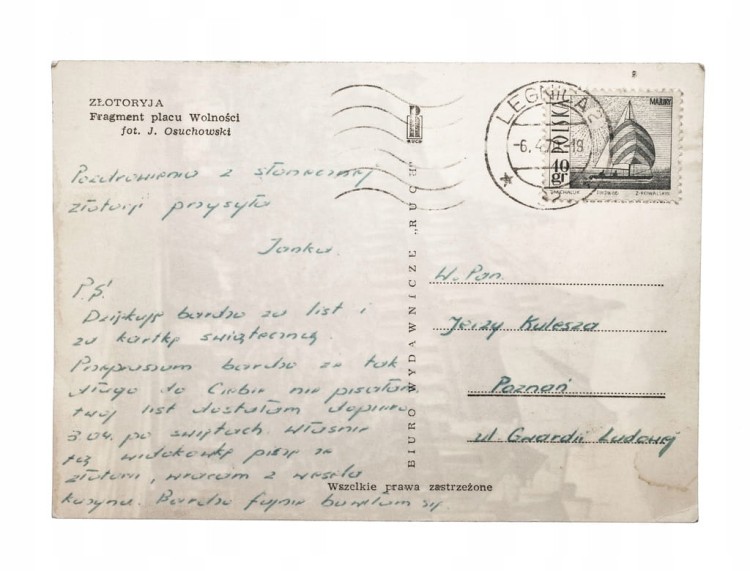 ZŁOTORYJA
Fragment placu Wolności
fot. J. Osuchowski
RUCH
LEGNICA
-6.4.7
-19
MAZURY
POLSKA
40 gr
Z. KOWALSKI
Pozdrowienia z słonecznej
złotoryi przysyła
Janka.
P.S!
Dziękuję bardzo za list i
za kartkę świąteczną.
Przepraszam bardzo że tak
długo do Ciebie nie pisałam
twój list dostałam dopiero
3.04. po świętach. właśnie
tą widokówkę piszę ze
złotoryi, wracam z wesela
kuzyna. Bardzo fajnie bawiłam się.
BIURO WYDAWNICZE „RUCH"
W. Pan.
Jerzy Kulesza
Poznań
ul Gwardii Ludowej
Wszelkie prawa zastrzeżone